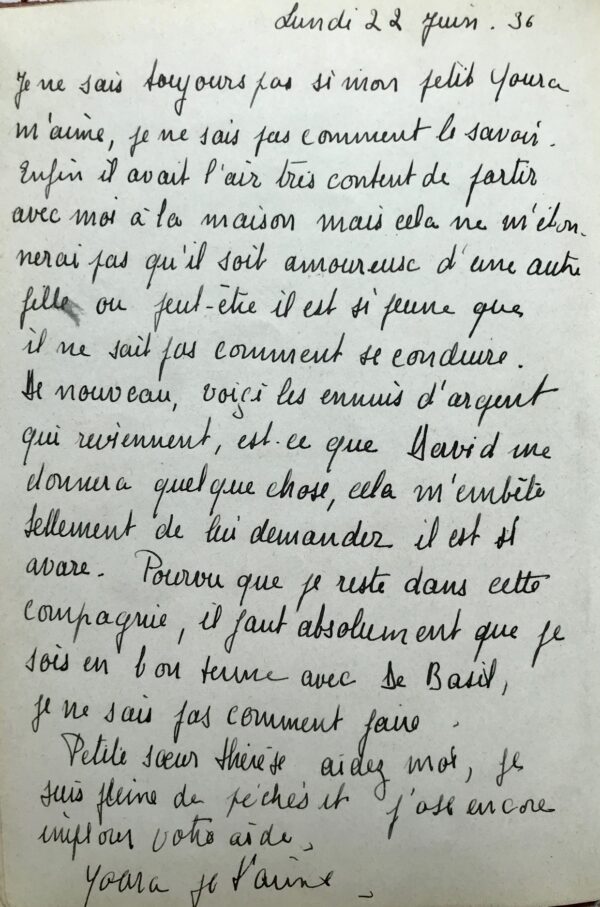 Lundi 22 Juin. 36
Je ne sais toujours pas si mon petit Youra
m'aime, je ne sais pas comment le savoir.
Enfin il avait l'air très content de partir
avec moi à la maison mais cela ne m'éton-
nerai pas qu'il soit amoureux d'une autre
fille ou peut-être il est si jeune que
il ne sait pas comment se conduire.
De nouveau, voiçi les ennuis d'argent
qui reviennent, est-ce que David me
donnera quelque chose, cela m'embête
tellement de lui demander il est si
avare. Pourvu que je reste dans cette
compagnie, il faut absolument que je
sois en bon terme avec De Basil,
je ne sais pas comment faire.
Petite sœur Thérèse aidez moi, je
suis pleine de péchés et j'ose encore
implorer votre aide,
Youra je t'aime